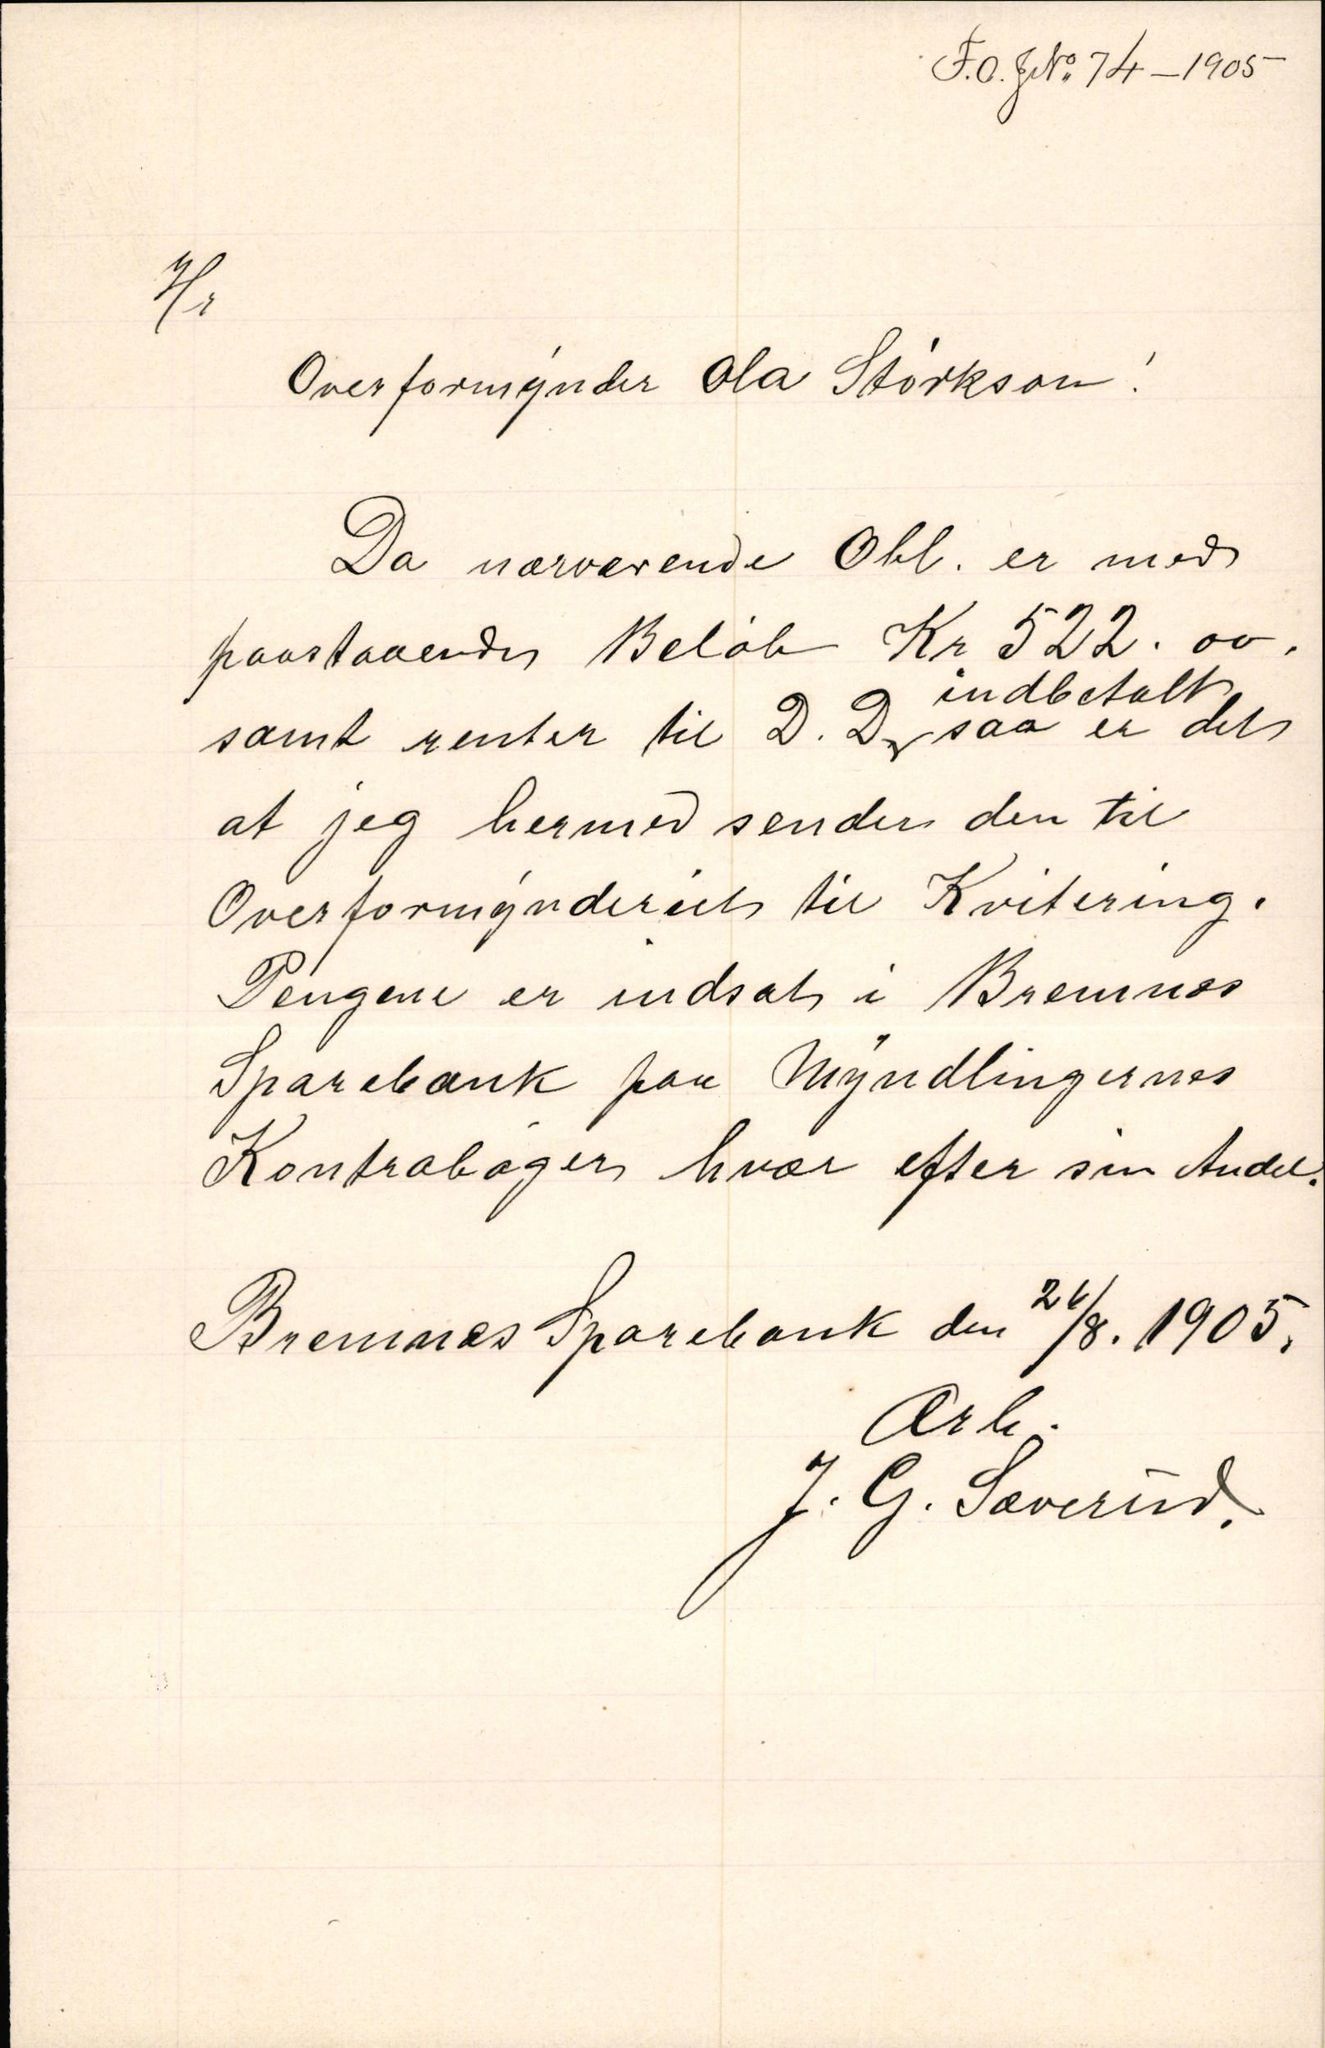 F.O.J.No. 74 – 1905
Hr
Overformynder Ola Störkson!
Da nærværende Obl. er med
paastaaende Belöb Kr 522.00.
samt renter til D. D. indbetalt saa er det
at jeg hermed sender den til
Overformynderiet til Kvitering.
Pengene er indsat i Bremnes
Sparebank paa Myndlingernes
Kontraböger hvær efter sin Andel.
Bremnæs Sparebank den 26/8. 1905.
Ærb.
J. G. Sæverud.